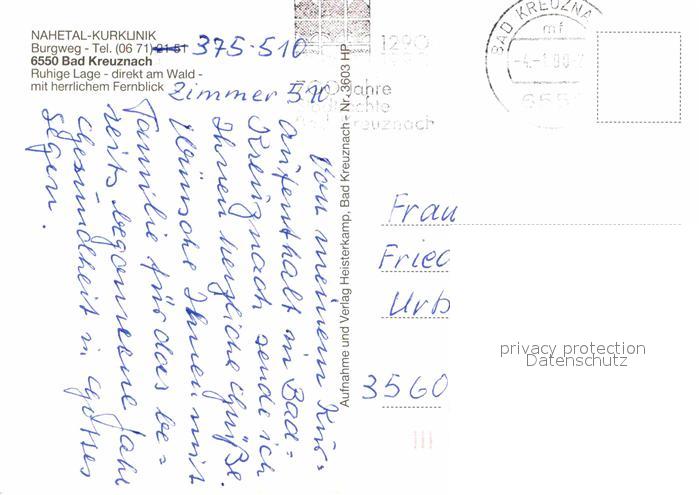 NAHETAL-KURKLINIK
Burgweg - Tel. (06 71) 21 51 375-510
6550 Bad Kreuznach
Ruhige Lage - direkt am Wald -
mit herrlichem Fernblick
Zimmer 510
Von meinem Kur-
aufenthalt in Bad-
Kreuznach sende ich
Ihnen herzliche Grüße.
Wünsche Ihnen mit
Familie für das be-
reits begonnene Jahr
Gesundheit u. Gottes
Segen.
Aufnahme und Verlag Heisterkamp, Bad Kreuznach - Nr. 3603 HP
1290
Jahre
Bad Kreuznach
BAD KREUZNA
mf
Frau
Fried
Urb
3560
privacy protection
Datenschutz